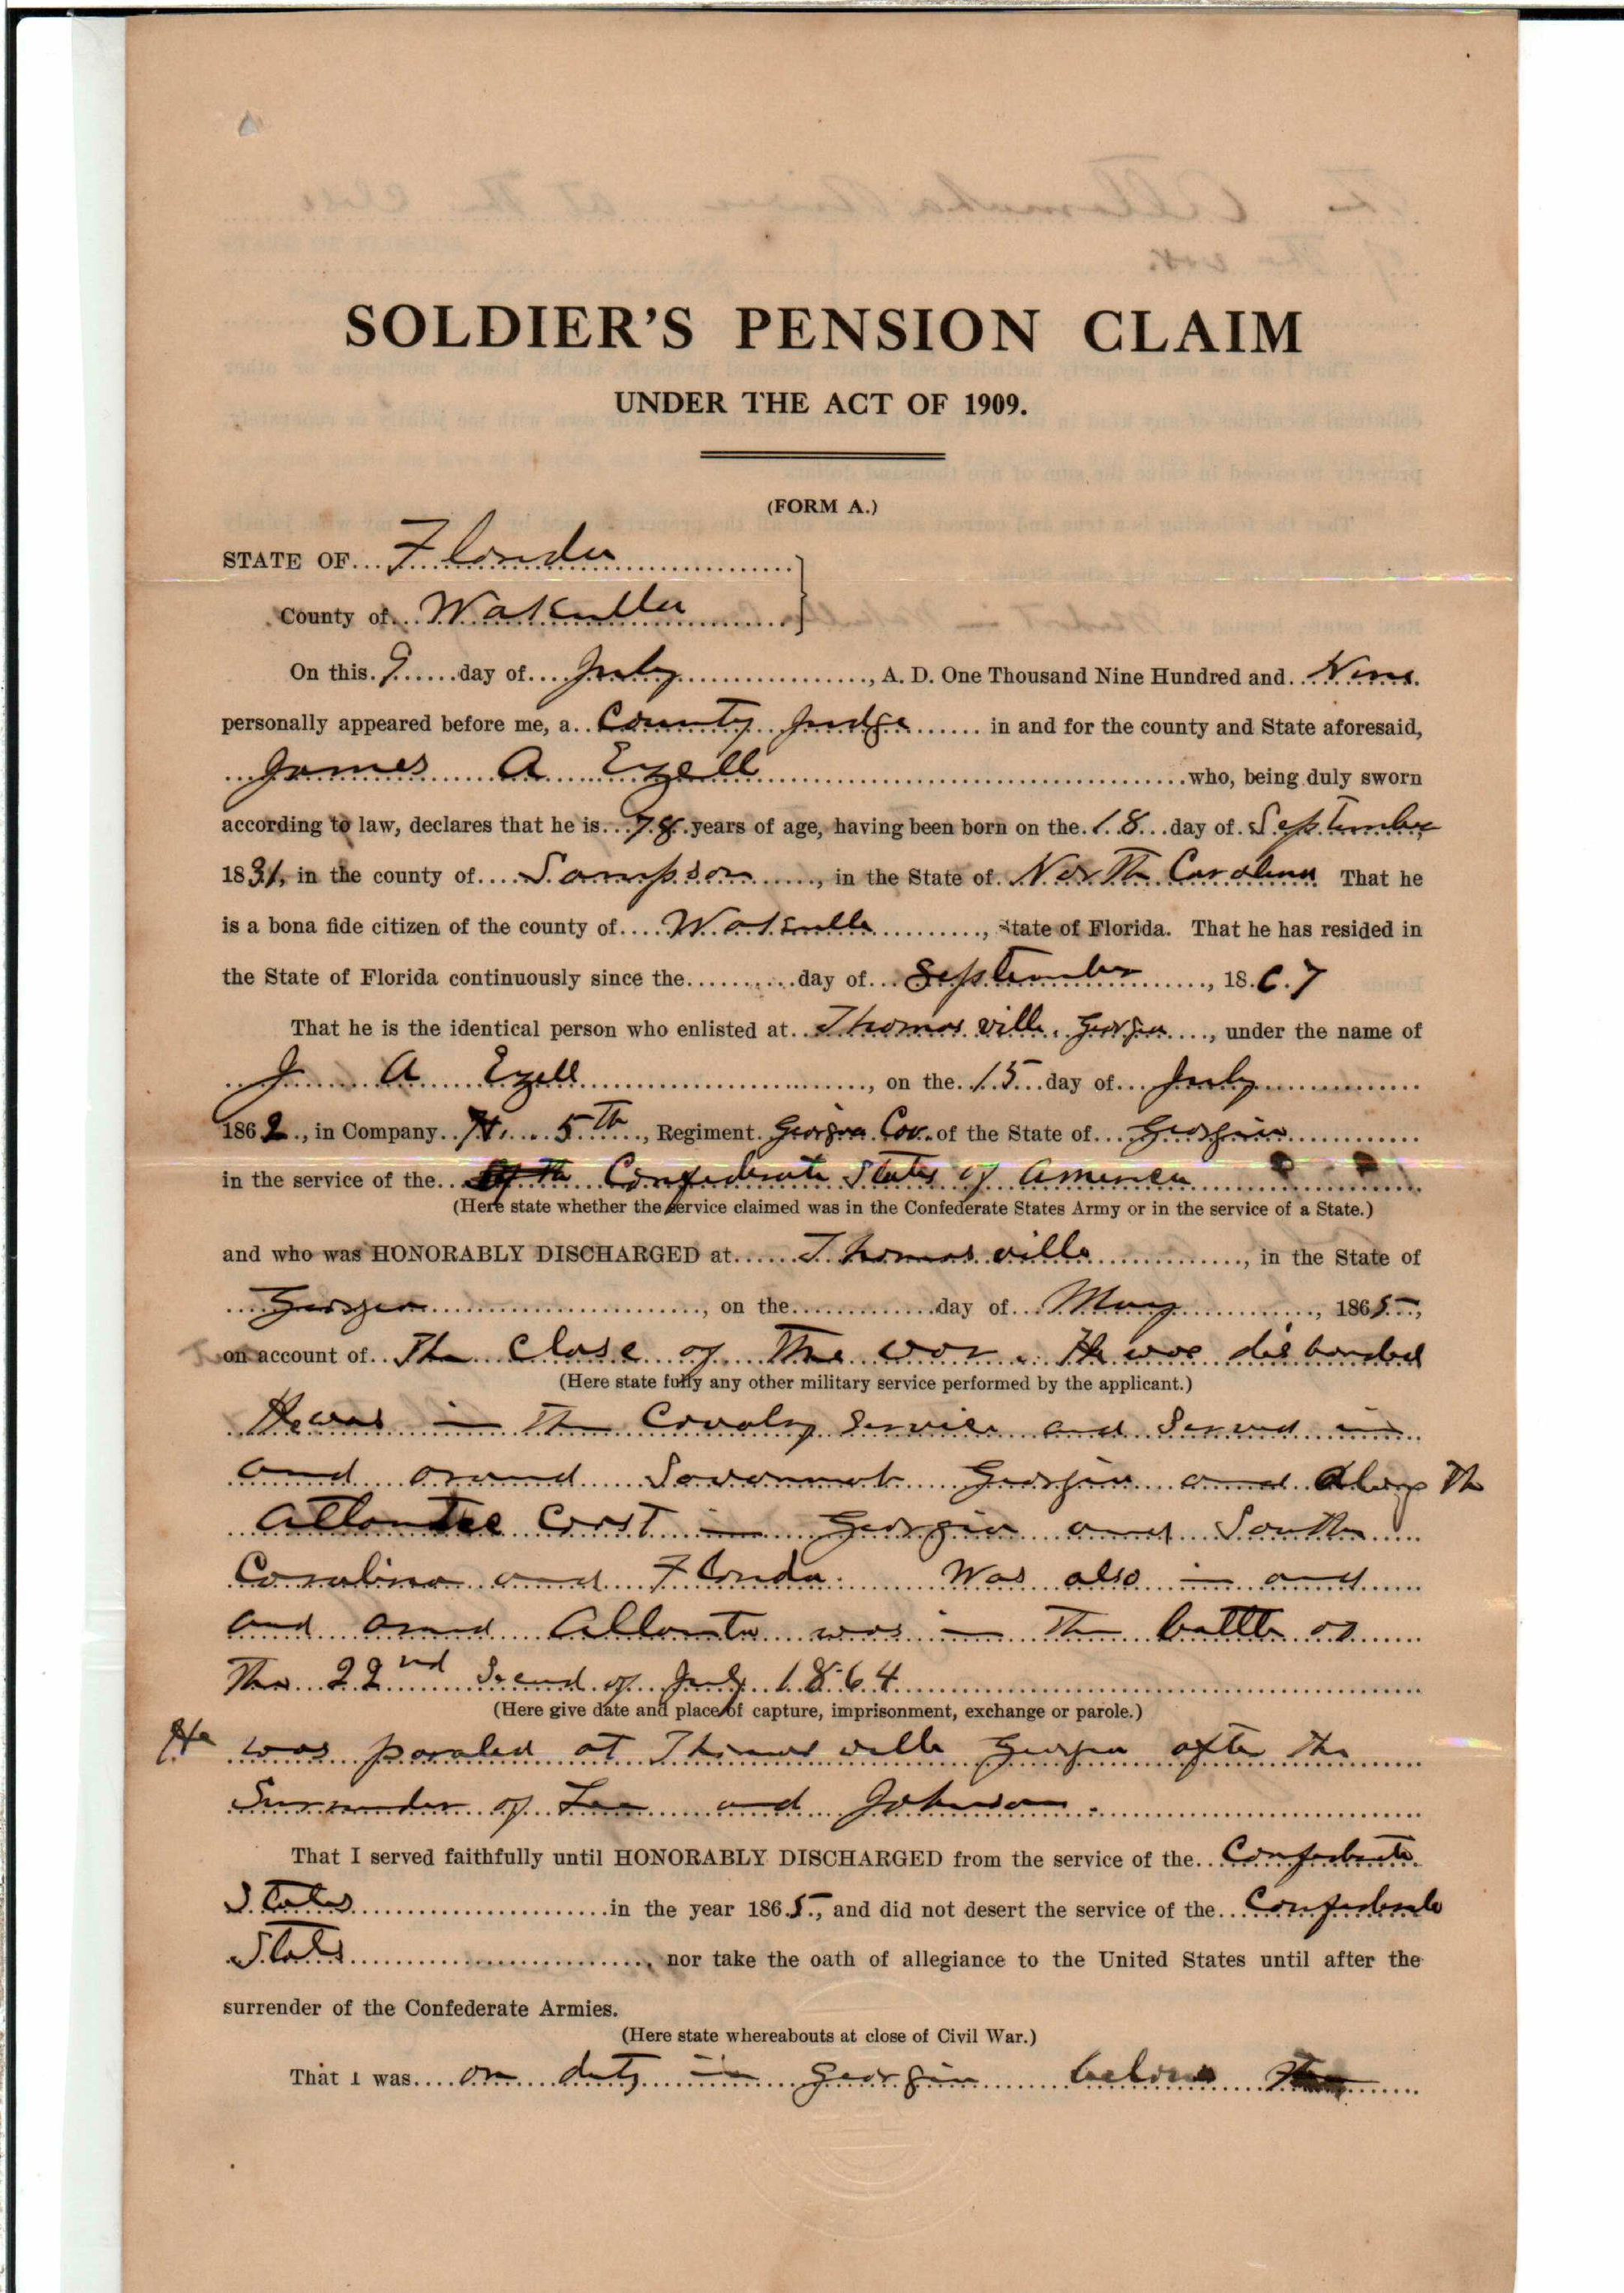 SOLDIER'S PENSION CLAIM
UNDER THE ACT OF 1909.
(FORM A.)
STATE OF Florida
County of Wakulla
On this 9 day of July, A. D. One Thousand Nine Hundred and Nine
personally appeared before me, a County Judge in and for the county and State aforesaid,
James A Ezell who, being duly sworn
according to law, declares that he is 78 years of age, having been born on the 18 day of September
1831, in the county of Sampson, in the State of North Carolina That he
is a bona fide citizen of the county of Wakulla, State of Florida. That he has resided in
the State of Florida continuously since the day of September, 1867
That he is the identical person who enlisted at Thomasville, Georgia, under the name of
J A Ezell, on the 15 day of July
1862, in Company H. 5th, Regiment Georgia Cav. of the State of Georgia
in the service of the Confederate States of America
(Here state whether the service claimed was in the Confederate States Army or in the service of a State.)
and who was HONORABLY DISCHARGED at Thomasville, in the State of
Georgia, on the day of May, 1865,
on account of The close of The war. He was disbanded
(Here state fully any other military service performed by the applicant.)
He was in The Cavalry Service and Served in
and around Savannah Georgia and along The
Atlantic Coast in Georgia and South
Carolina and Florida. Was also in and
and around Atlanta was in The battle on
The 22nd of July 1864
(Here give date and place of capture, imprisonment, exchange or parole.)
He was paroled at Thomasville Georgia after the
Surrender of Lee and Johnson.
That I served faithfully until HONORABLY DISCHARGED from the service of the Confederate
States in the year 1865, and did not desert the service of the Confederate
States, nor take the oath of allegiance to the United States until after the
surrender of the Confederate Armies.
(Here state whereabouts at close of Civil War.)
That I was on duty in Georgia below